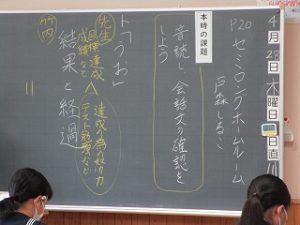 4月28日木曜日 日直
P20 セミロングホームルーム
戸森しるこ
本時の課題
音読し、会話文の確認を
しよう
先生
目標達成
成績など
達成の為の努力
テスト勉強など
竹内
結果と経過